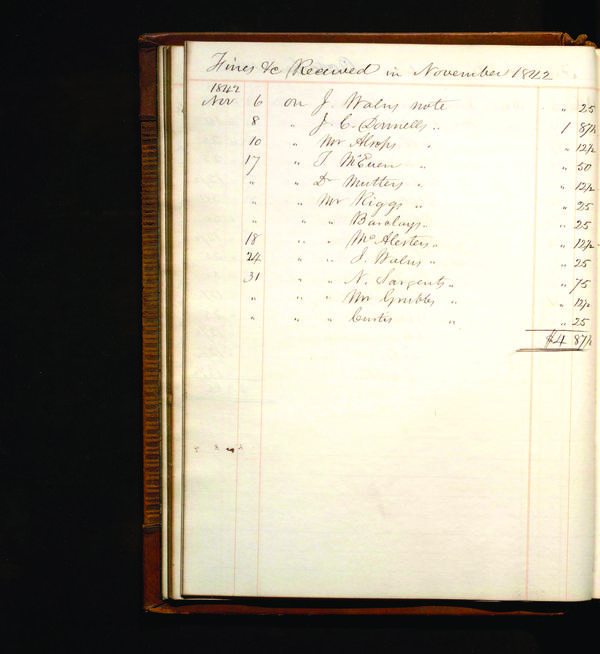 Fines &c Received in November 1842
1842
Nov 6 on J. Walns note " 25
8 " J. C. Donnells " 1 87½
10 " Mr Alsops " " 12½
17 " T McEuen " " 50
" " Dr Mutters " " 12½
" " Mr Riggs " " 25
" " " Barclays " " 25
18 " " McAlesters " " 12½
24 " " J. Walns " " 25
31 " " N. Sargents " " 75
" " " Mr Grubbs " " 12½
" " " Curtis " " 25
$4 87½